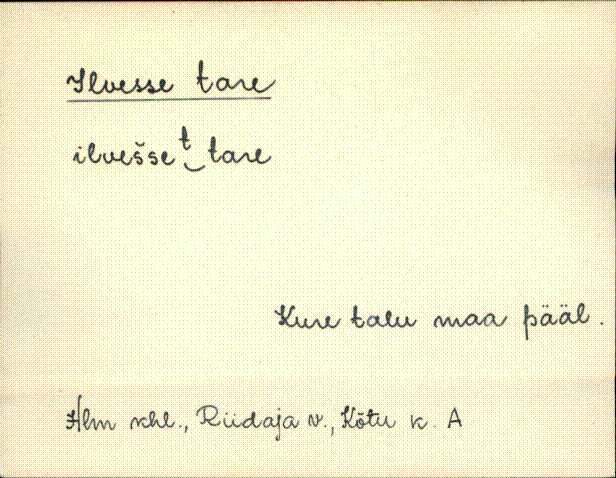 Ilvesse tare
ilvešse t‿tare
Kure talu maa pääl.
Hlm khl., Riidaja v., Kõtu k. A